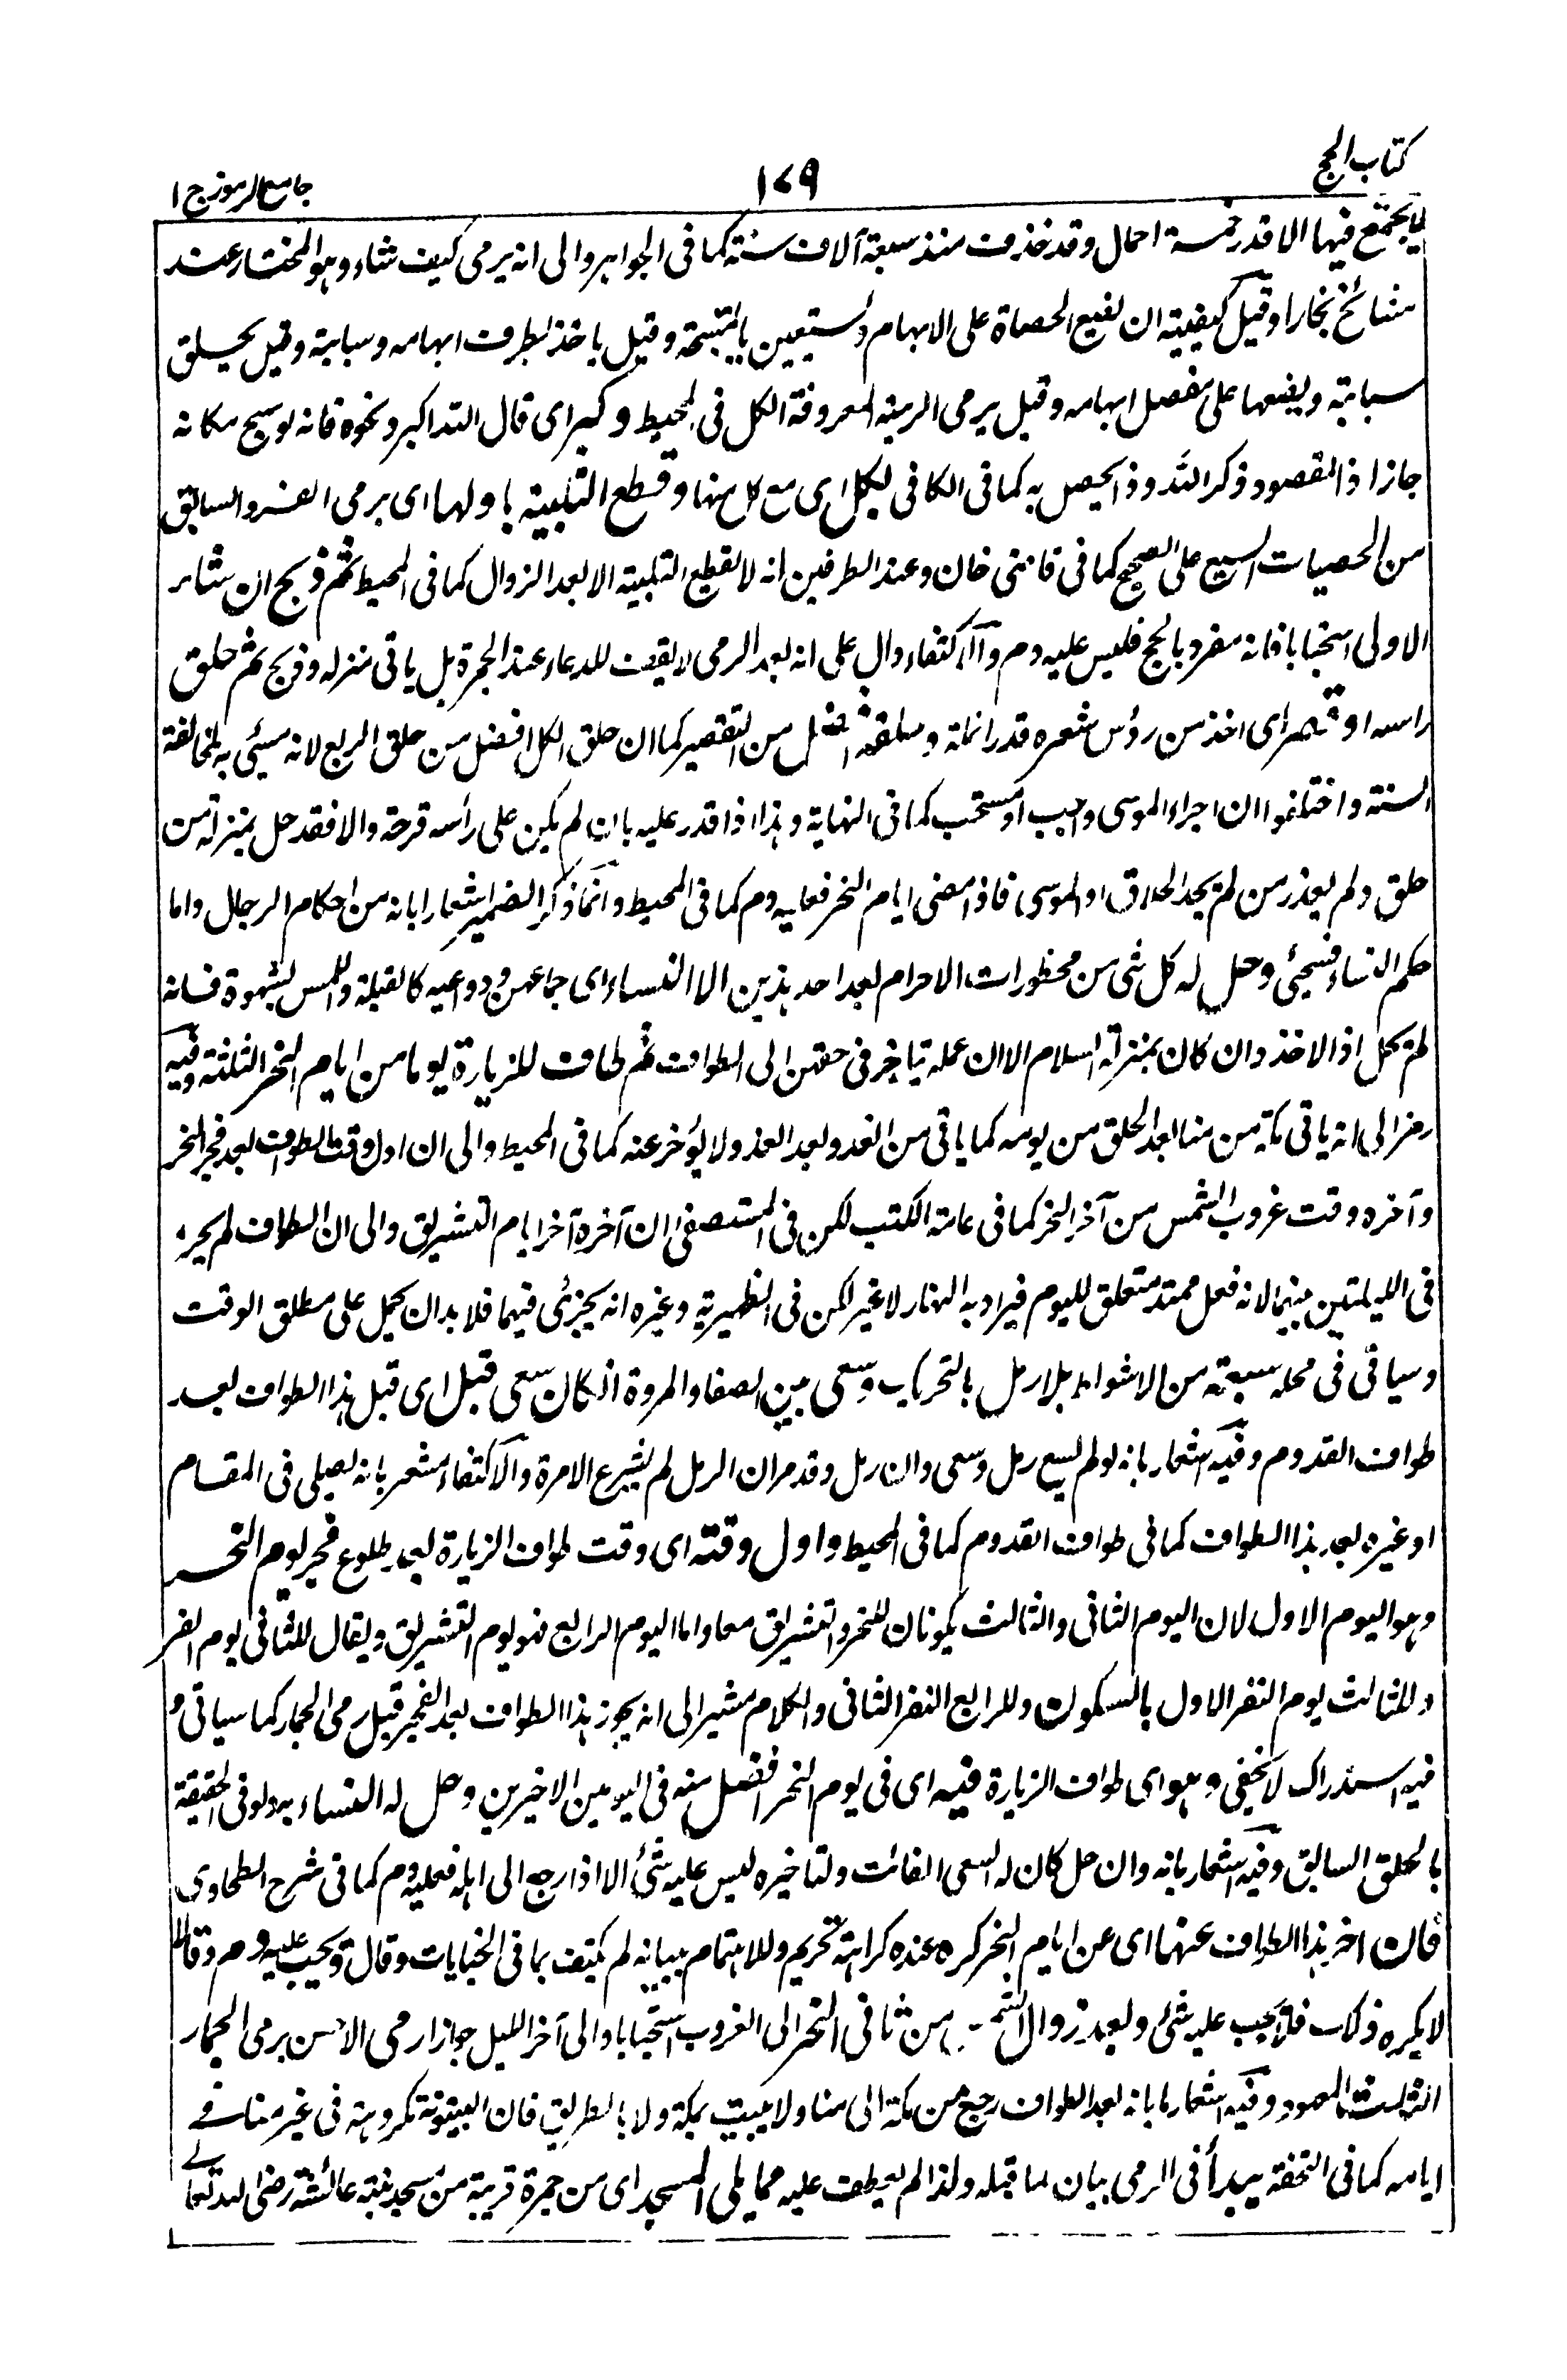 كتاب الحج
١٧٩
جامع الرموز ج ١
لا يجتمع فيها الا قدر خمسة احمال وقد خذفت منذ سبعة آلاف سنة كما فى الجواهر والى انه يرمى كيف شاء وهو المختار عند
مشائخ بخارا وقيل كيفيته ان يضع الحصاة على الابهام ويستعين بالمسبحة وقيل ياخذ بطرف ابهامه وسبابته وقيل يحلق
سبابته ويضعها على مفصل ابهامه وقيل يرمى الرمية المعروفة الكل فى المحيط وكبر اى قال الله اكبر ونحوه فانه لو سبح مكانه
جاز اذ المقصود ذكر الله وذا يحصل به كما فى الكافى لكل اى مع كل منها وقطع التلبية باولها اى برمى الفرد السابق
من الحصيات السبع على الصحيح كما فى قاضى خان وعند الطرفين انه لا يقطع التلبية الا بعد الزوال كما فى المحيط ثم ذبح ان شاء
الاولى استحبابا فانه مفرد بالحج فليس عليه دم والاكتفاء دال على انه بعد الرمى لا يقف للدعاء عند الجمرة بل ياتى منزله وذبح ثم حلق
راسه او قصر اى اخذ من رؤس شعره قدر انملة وحلقه افضل من التقصير كما ان حلق الكل افضل من حلق الربع لانه مسيئ به لمخالفة
السنة واختلفوا ان اجراء الموسى واجب او مستحب كما فى النهاية وهذا اذا قدر عليه بان لم يكن على رأسه قرحة والا فقد حل بمنزلة من
حلق ولم يعذر من لم يجد الحلاق او الموسى فاذا مضى ايام النحر فعليه دم كما فى المحيط وانما ذكر الضمير اشعارا بانه من احكام الرجال واما
حكم النساء فسيجئ وحل له كل شئ من محظورات الاحرام بعد احد هذين الا النساء اى جماعهن ودواعيه كالقبلة واللمس لشهوة فانه
لم يحل اذ الاخذ وان كان بمنزلة السلام الا ان عمله يتاخر فى حقهن الى الطواف ثم طاف للزيارة يوما من ايام النحر الثلثة وفيه
رمز الى انه ياتى مكة من منا بعد الحلق من يومه كما ياتى من الغد وبعد الغد ولا يؤخر عنه كما فى المحيط والى ان اول وقت الطواف بعد فجر النحر
وآخره وقت غروب الشمس من آخر النحر كما فى عامة الكتب لكن فى المستصفى ان آخره آخر ايام التشريق والى ان الطواف لم يجز
فى الليلتين بينهما لانه فعل ممتد متعلق لليوم فيراد به النهار لا غير لكن فى الظهيرية وغيره انه يجزئ فيهما فلا بد ان يحمل على مطلق الوقت
وسياتى فى محله سبعة من الاشواط بلا رمل بالتحريك وسعى بين الصفا والمروة ان كان سعى قبل اى قبل هذا الطواف بعد
طواف القدوم وفيه اشعار بانه لو لم يسع رمل وسعى وان رمل وقد مر ان الرمل لم يشرع الا مرة والاكتفاء مشعر بانه يصلى فى المقام
او غيره بعد هذا الطواف كما فى طواف القدوم كما فى المحيط واول وقته اى وقت طواف الزيارة بعد طلوع فجر يوم النحر
وهو اليوم الاول لان اليوم الثانى والثالث يكونان للنحر والتشريق معا واما اليوم الرابع فهو يوم التشريق ويقال للثانى يوم القر
وللثالث يوم النفر الاول بالسكون وللرابع النفر الثانى والكلام مشير الى انه يجوز هذا الطواف بعد الفجر قبل رمى الجمار كما سياتى و
فيه استدراك لا يخفى وهو اى طواف الزيارة فيه اى فى يوم النحر افضل منه فى اليومين الاخيرين وحل له النساء به ولو فى الحقيقة
بالحلق السابق وفيه اشعار بانه وان حل كان له السعى الفائت ولتاخيره ليس عليه شئ الا اذا رجع الى اهله فعليه دم كما فى شرح الطحاوى
فان اخر هذا الطواف عنها اى عن ايام النحر كره عنده كراهة تحريم وللاهتمام ببيانه لم يكتف بما فى الجنايات وقال ويجب عليه دم وقالا
لا يكره ذلك فلا يجب عليه شئ وبعد زوال الشمس من ثانى النحر الى الغروب استحبابا والى آخر الليل جوازا رمى الانسان برمى الجمار
الثلث المعهود وفيه اشعار ما بانه بعد الطواف رجع من مكة الى منا ولا يبيت بمكة ولا بالطريق فان البيتوتة مكروهة فى غير منا فى
ايامه كما فى التحفة يبدأ فى الرمى بيان لما قبله ولذا لم يعطف عليه مما يلى المسجد اى من جمرة قريبة من مسجد بنته عائشة رضى الله تعالى